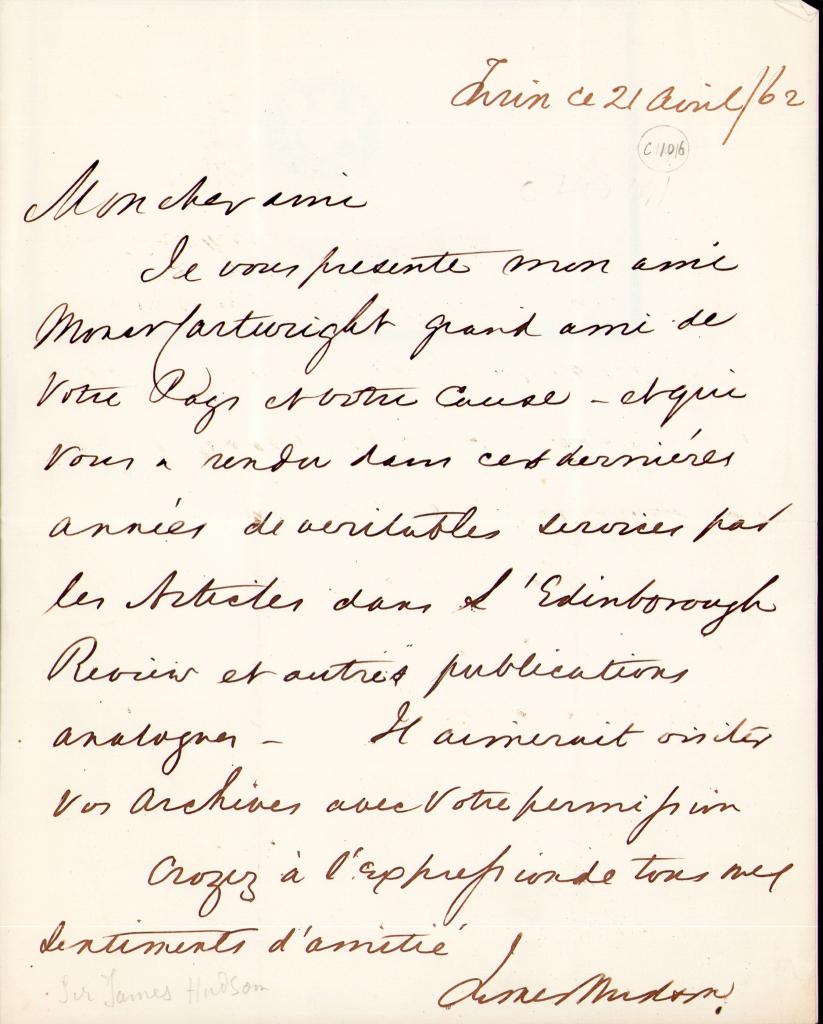 Turin ce 21 Avril /62
C1106
Mon cher ami
Je vous presente mon ami
Monsr Cartwright grand ami de
Votre Pays et votre Cause – et qui
vous a rendu dans ces dernières
années de veritables services par
les Articles dans L'Edinborough
Review et autres publications
analogues – Il aimerait visiter
vos Archives avec votre permission
Croyez à l'Expression de tous mes
sentiments d'amitié
James Hudson.
Sir James Hudson